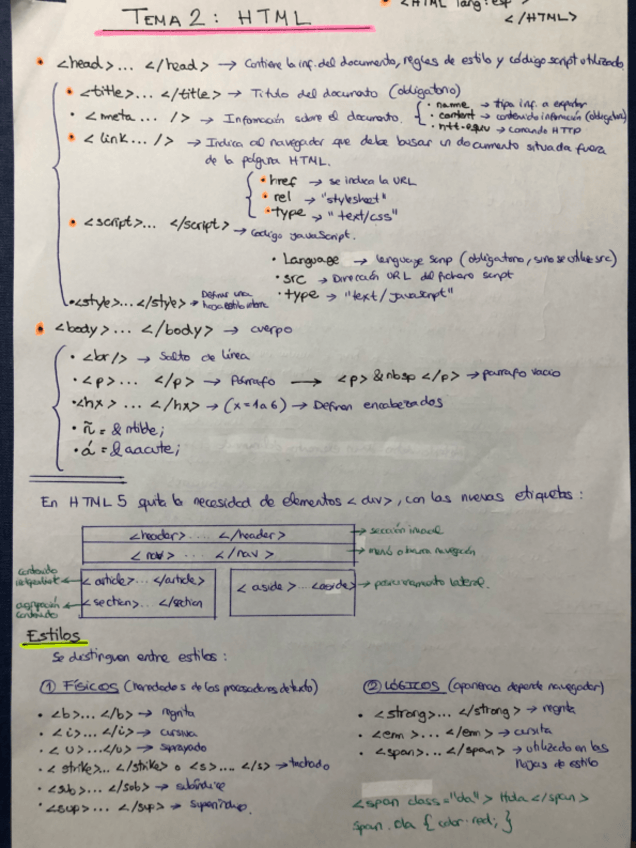 <HTML lang:esp>
TEMA 2: HTML
</HTML>
<head>... </head> → Contiene la inf. del documento, reglas de estilo y código script utilizado
<title>... </title> → Título del documento (obligatorio)
<meta... /> → Información sobre el documento.
• name → tipo inf. a
• content → contenido información (obligatorio)
• htt-equiv → comando HTTP
<link... /> → Indica al navegador que debe buscar un documento situada fuera
de la página HTML.
• href → se indica la URL
• rel → "stylesheet"
• type → "text/css"
<script>... </script> → Código JavaScript.
• Language → lenguage scrip (obligatorio, si no se utiliza src)
• src → Dirección URL del fichero script
• type → "text/javascript"
<style>...</style> → Definir una
hoja estilo interna
<body>... </body> → cuerpo
• <br/> → Salto de línea
• <p>... </p> → Párrafo → <p> &nbsp </p> → párrafo vacío
• <hx> ... </hx> → (x=1 a 6) → Definen encabezados
• ñ = & ntilde;
• á = & aacute;
En HTML 5 quita la necesidad de elementos <div>, con las nuevas etiquetas:
<header> .... </header> → sección inicial
<nav> .... </nav> → menú o barra navegación
contenido
independiente ← <article>... </article>
<aside>... <aside> → para un momento lateral.
agrupación
contenido ← <section>... </section
Estilos
Se distinguen entre estilos:
① FÍSICOS (heredados de los procesadores de texto)
• <b>... </b> → negrita
• <i>... </i> → cursiva
• <u>...</u> → subrayado
• <strike>... </strike> o <s>.... </s> → tachado
• <sub>... </sob> → subíndice
• <sup>... </sup> → superíndice.
② LÓGICOS (apariencia depende navegador)
• <strong>... </strong> → negrita
• <em>... </em> → cursiva
• <span>... </span> → utilizado en las
hojas de estilo
<span class="ola"> Hola </span>
span.ola { color: red; }